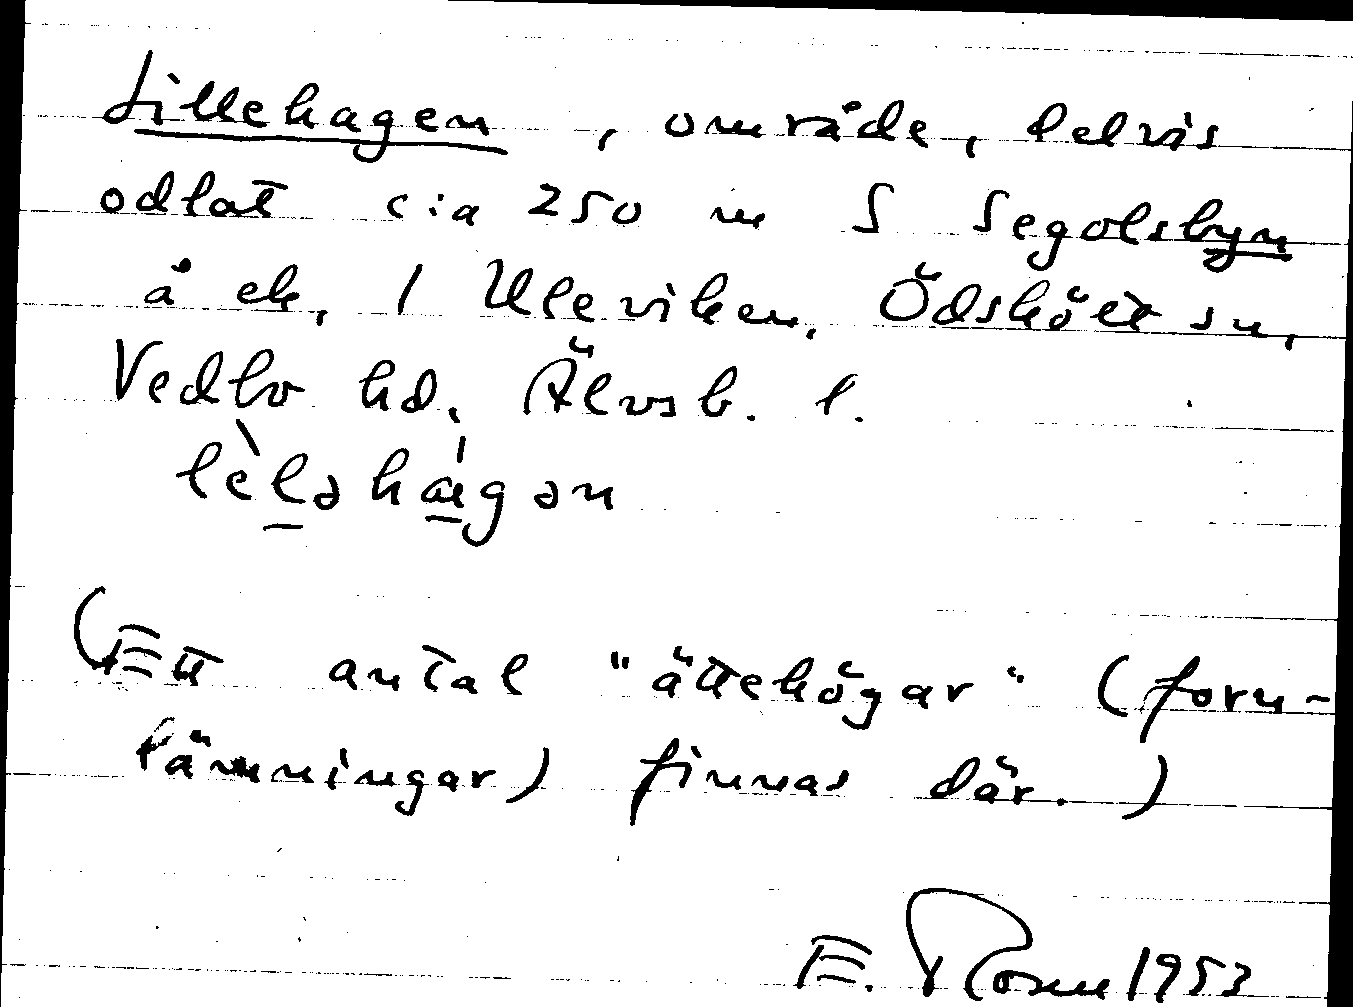 Lillehagen, område, delvis
odlat c:a 250 m S Segolsbyn
å ek, 1 Uleviken, Ödskölt sn,
Vedbo hd, Älvsb. l.
lèləháigən
(Ett antal "ättehögar" (forn-
lämningar) finnas där.)
E. Rosen 1953